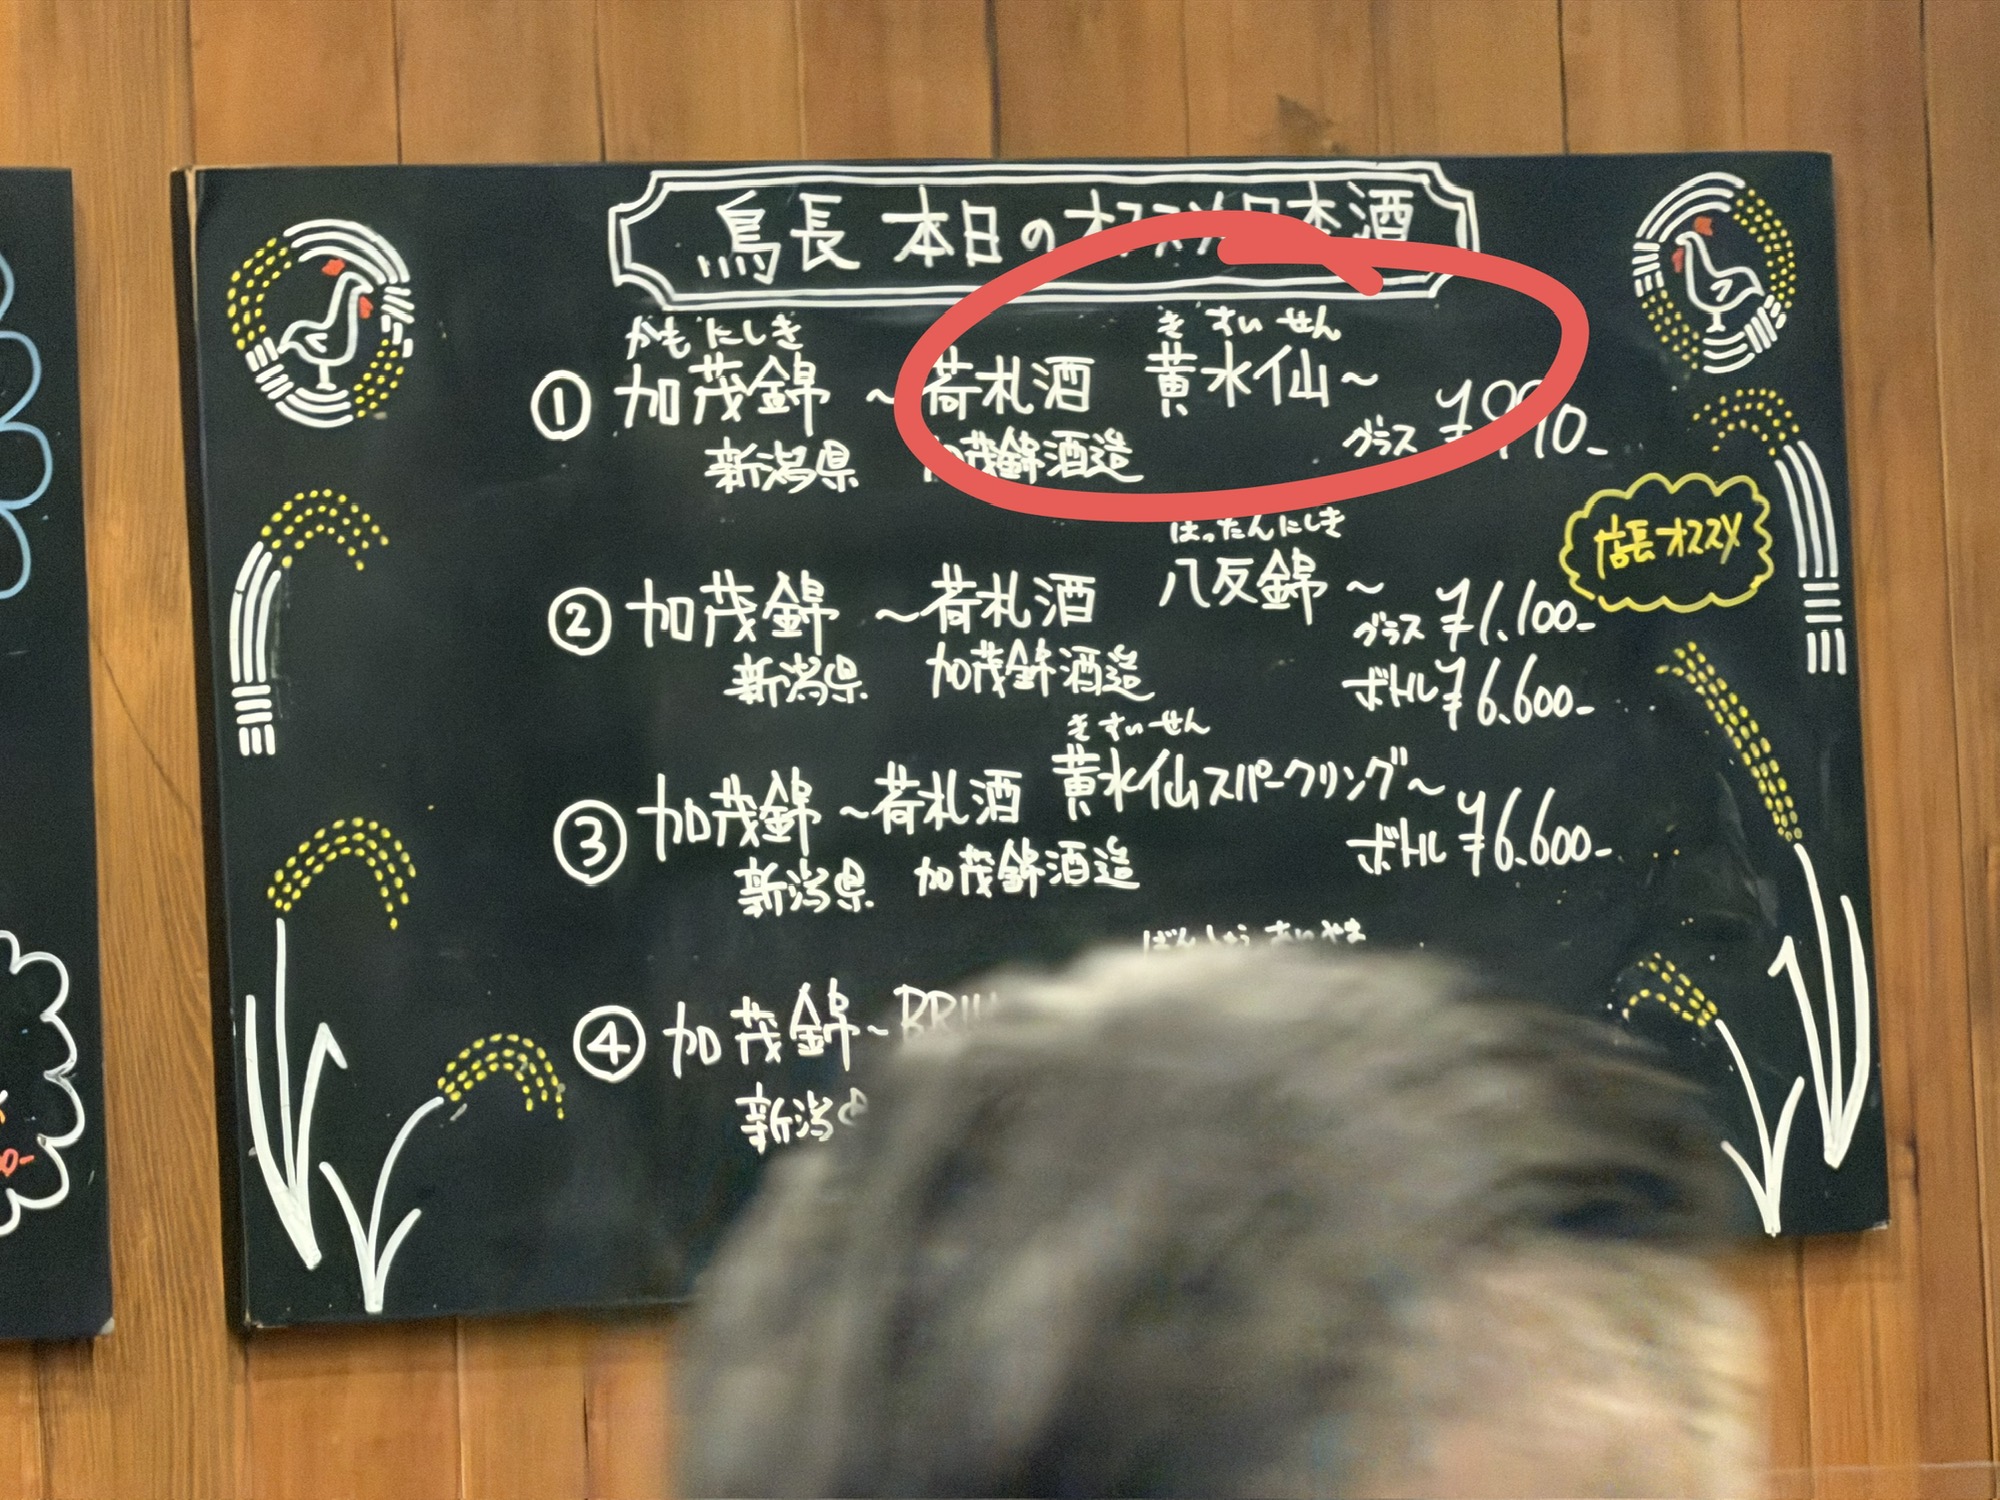 鳥長 本日のオススメ日本酒
かもにしき きすいせん
① 加茂錦 ~荷札酒 黄水仙~
グラス ¥990-
新潟県 加茂錦酒造
はったんにしき
② 加茂錦 ~荷札酒 八反錦~
店長オススメ
グラス ¥1.100-
新潟県 加茂錦酒造
ボトル ¥6.600-
きすいせん
③ 加茂錦 ~荷札酒 黄水仙スパークリング~
ボトル ¥6.600-
新潟県 加茂錦酒造
④ 加茂錦~
新潟